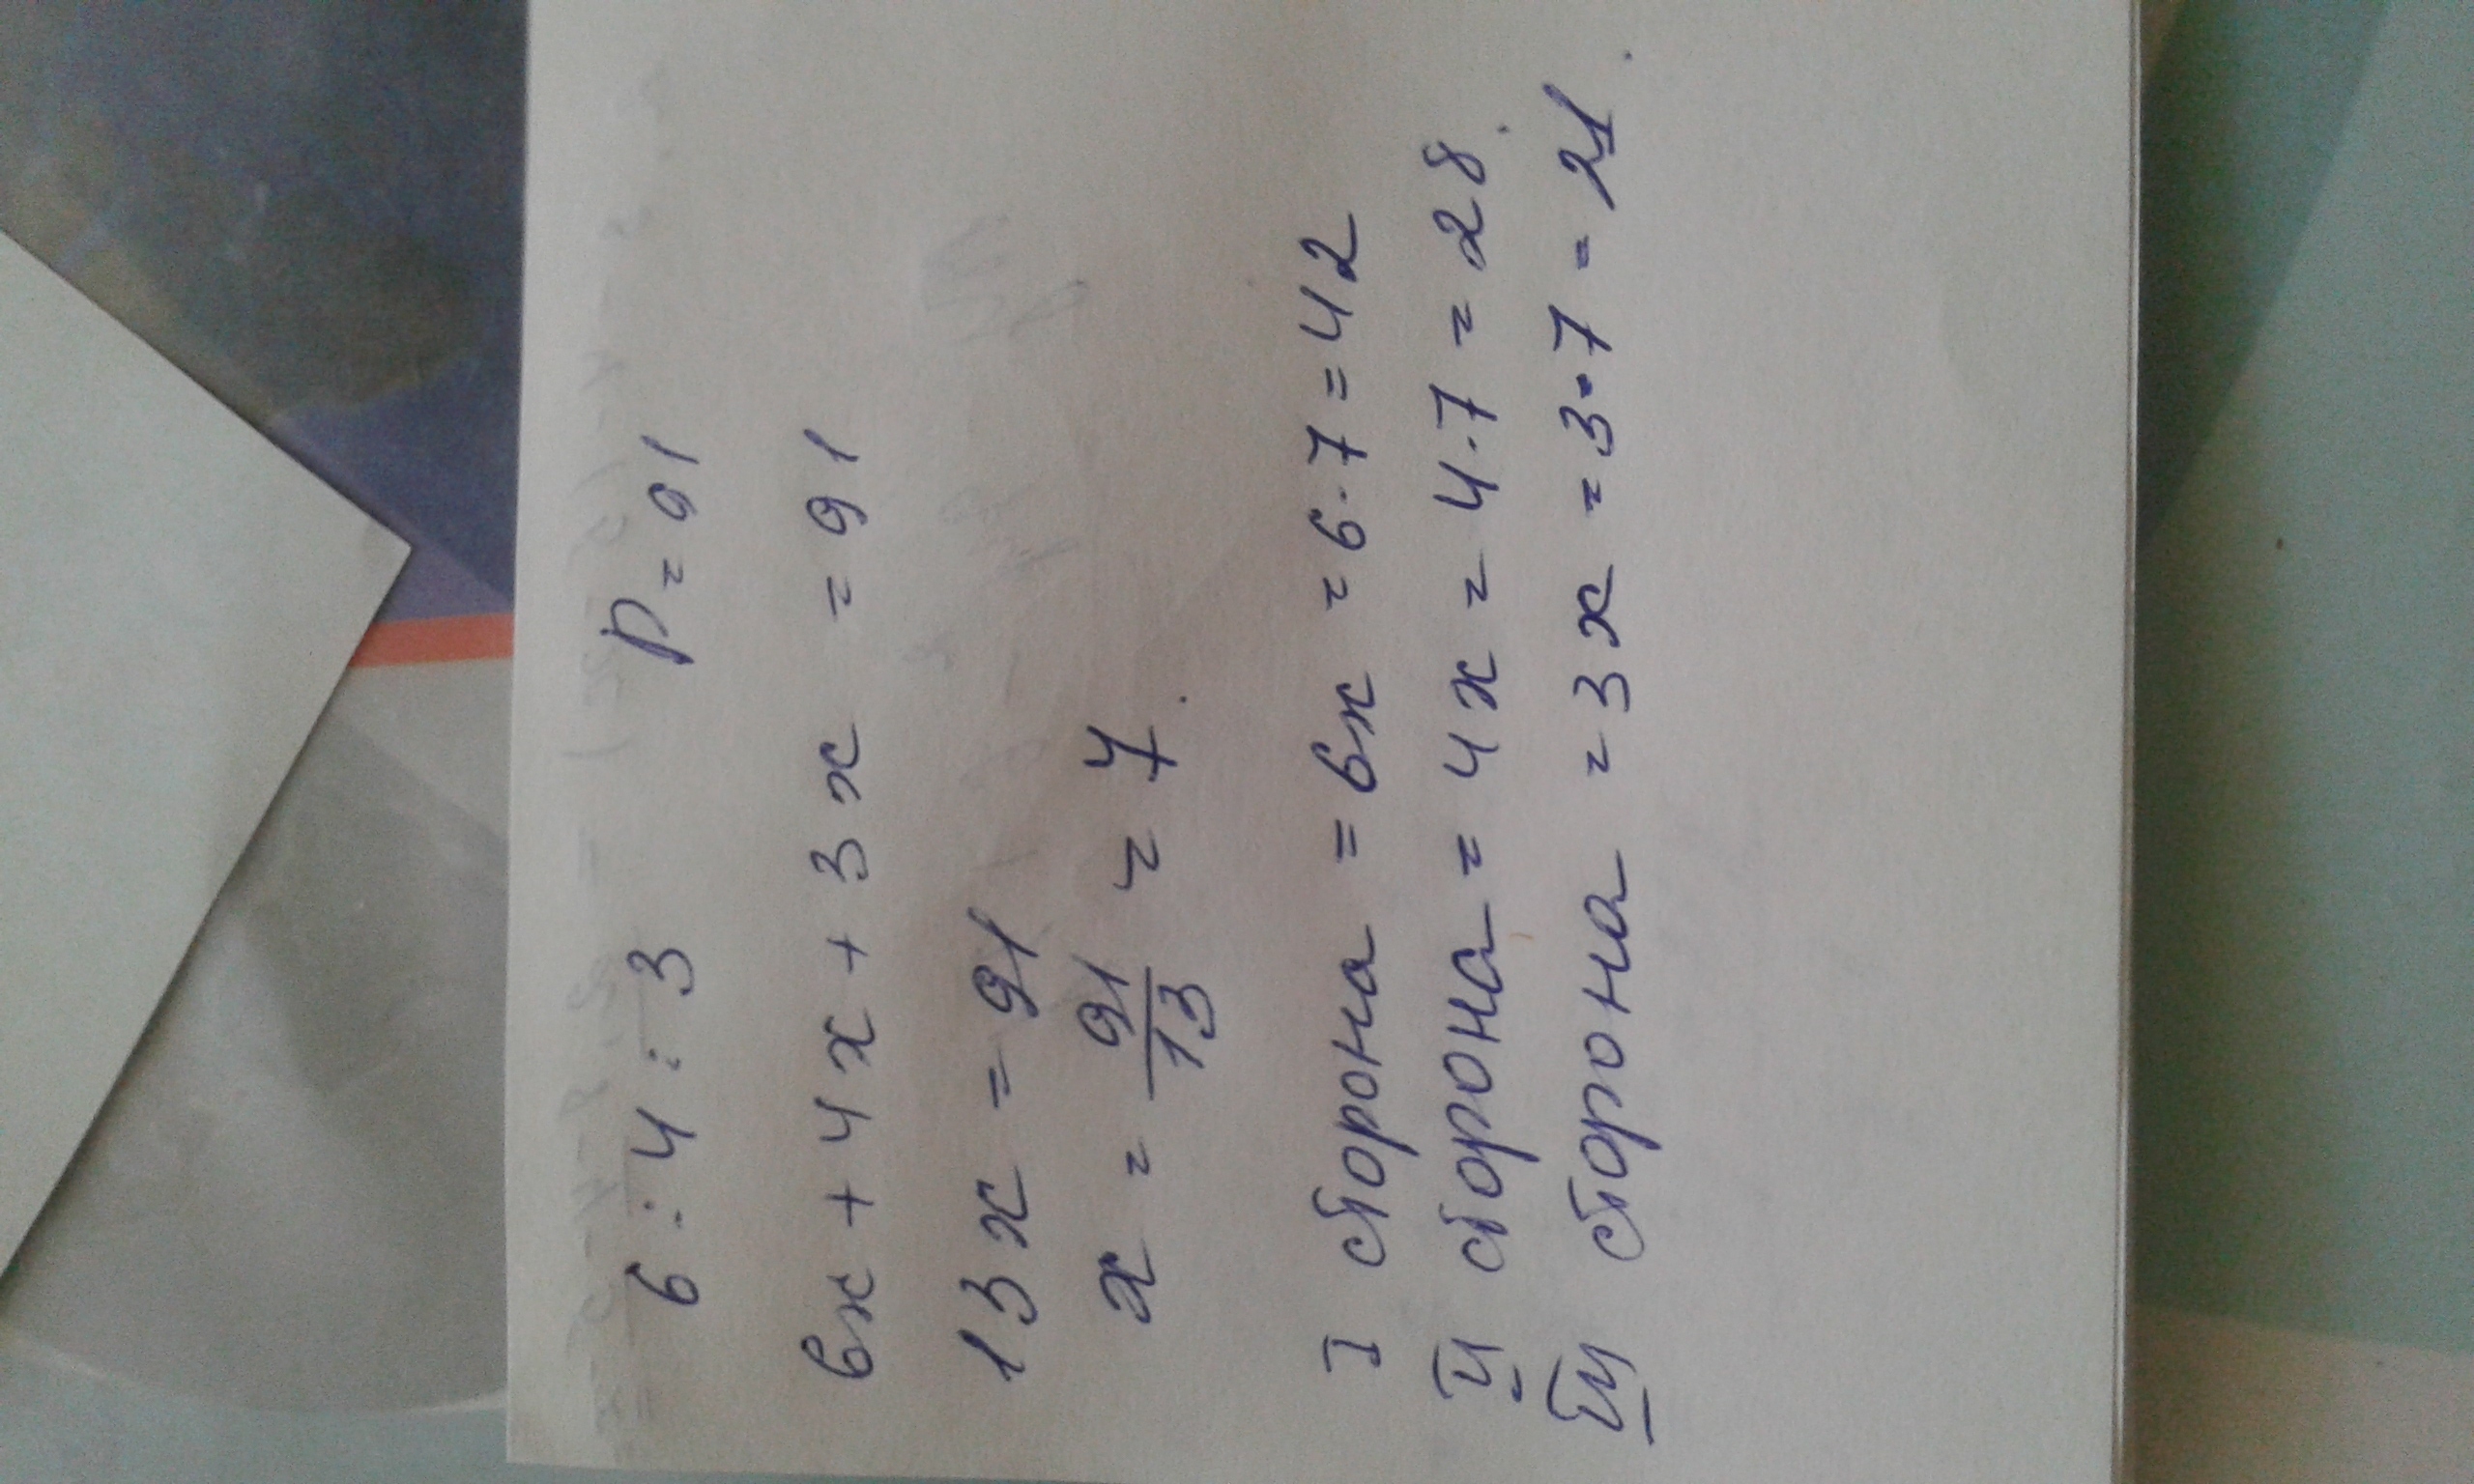 6 : 4 : 3 P = 91
6x + 4x + 3x = 91
13x = 91
x = 91/13 = 7.
I сторона = 6x = 6·7 = 42
II сторона = 4x = 4·7 = 28.
III сторона = 3x = 3·7 = 21.